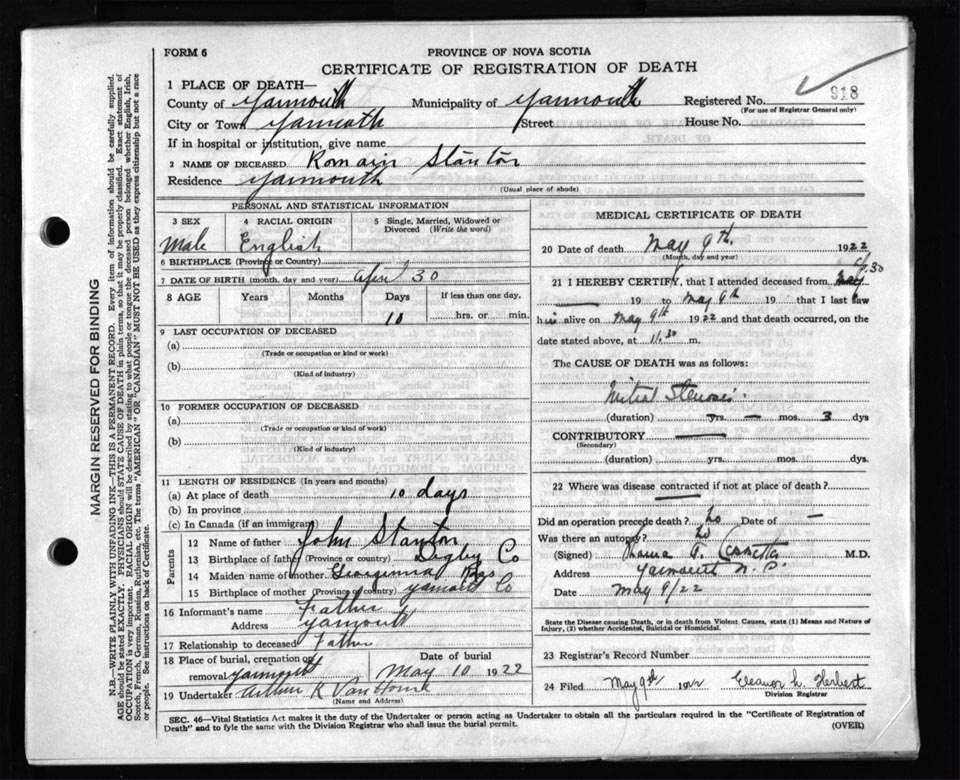 FORM 6
PROVINCE OF NOVA SCOTIA
CERTIFICATE OF REGISTRATION OF DEATH
1 PLACE OF DEATH—
County of Yarmouth Municipality of Yarmouth Registered No. 918
(For use of Registrar General only)
City or Town Yarmouth Street House No.
If in hospital or institution, give name
2 NAME OF DECEASED Romain Stanton
Residence Yarmouth
(Usual place of abode)
PERSONAL AND STATISTICAL INFORMATION
3 SEX 4 RACIAL ORIGIN 5 Single, Married, Widowed or Divorced (Write the word)
Male English
6 BIRTHPLACE (Province or Country)
7 DATE OF BIRTH (month, day and year) April 30
8 AGE Years Months Days If less than one day,
10 hrs. or min.
9 LAST OCCUPATION OF DECEASED
(a)
(Trade or occupation or kind or work)
(b)
(Kind of industry)
10 FORMER OCCUPATION OF DECEASED
(a)
(Trade or occupation or kind of work)
(b)
(Kind of industry)
11 LENGTH OF RESIDENCE (In years and months)
(a) At place of death 10 days
(b) In province
(c) In Canada (if an immigrant)
Parents
12 Name of father John Stanton
13 Birthplace of father (Province or country) Digby Co
14 Maiden name of mother Georginna
15 Birthplace of mother (Province or country) Yarmouth Co
16 Informant's name Father
Address Yarmouth
17 Relationship to deceased Father
18 Place of burial, cremation or removal Yarmouth Date of burial May 10 1922
19 Undertaker Arthur K VanHorne
(Name and Address)
MEDICAL CERTIFICATE OF DEATH
20 Date of death May 9th. 1922
(Month, day and year)
21 I HEREBY CERTIFY, that I attended deceased from May 30
19 to May 9th 19 that I last saw
him alive on May 9th 1922 and that death occurred, on the
date stated above, at 11.30 m.
The CAUSE OF DEATH was as follows:
Mitral Stenosis
(duration) yrs. — mos. 3 dys
CONTRIBUTORY
(Secondary)
(duration) yrs. mos. dys.
22 Where was disease contracted if not at place of death?
Did an operation precede death? No Date of —
Was there an autopsy? No
(Signed) M.D.
Address Yarmouth N.S.
Date May 9/22
State the Disease causing Death, or in death from Violent Causes, state (1) Means and Nature of Injury, (2) whether Accidental, Suicidal or Homicidal.
23 Registrar's Record Number
24 Filed May 9th 1922 Eleanor L. Herbert
Division Registrar
SEC. 46—Vital Statistics Act makes it the duty of the Undertaker or person acting as Undertaker to obtain all the particulars required in the "Certificate of Registration of
Death" and to fyle the same with the Division Registrar who shall issue the burial permit. (OVER)
MARGIN RESERVED FOR BINDING
N.B.—WRITE PLAINLY WITH UNFADING INK—THIS IS A PERMANENT RECORD. Every item of information should be carefully supplied.
AGE should be stated EXACTLY. PHYSICIANS should STATE CAUSE OF DEATH in plain terms, so that it may be properly classified. Exact statement of
OCCUPATION is very important. RACIAL ORIGIN will be described by stating to what people or tongue the deceased person belonged whether English, Irish,
Scotch, French, German, Russian, Ruthenian, etc. The terms "AMERICAN" OR "CANADIAN" MUST NOT BE USED as they express citizenship but not a race
or people. See instructions on back of Certificate.